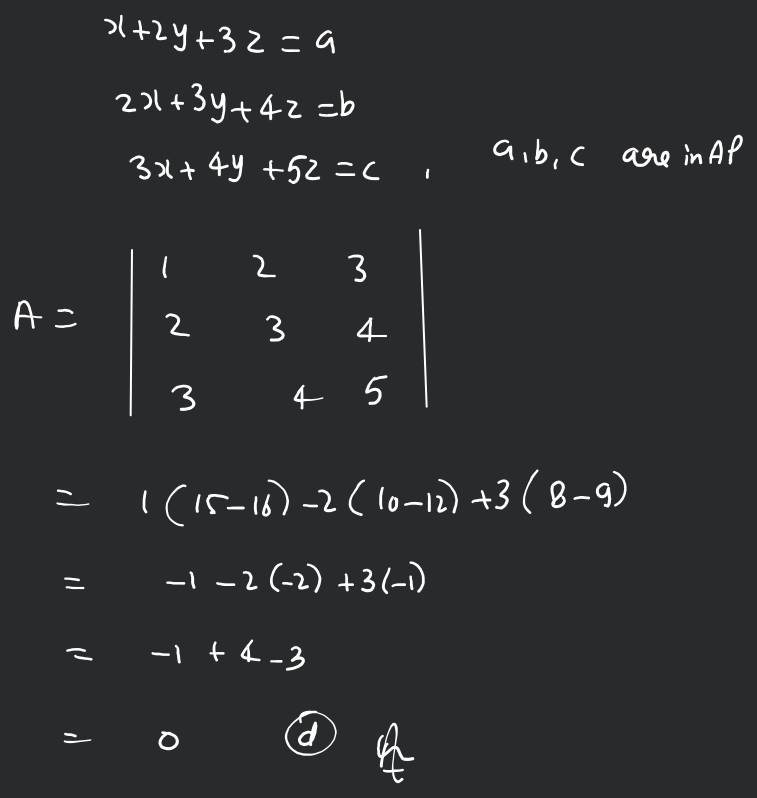 x+2y+3z = a
2x+3y+4z =b
3x+ 4y +5z =c , a,b, c are in AP
A = | 1 2 3 |
| 2 3 4 |
| 3 4 5 |
= 1(15-16) -2(10-12) +3(8-9)
= -1 -2(-2) +3(-1)
= -1 + 4 -3
= 0 d